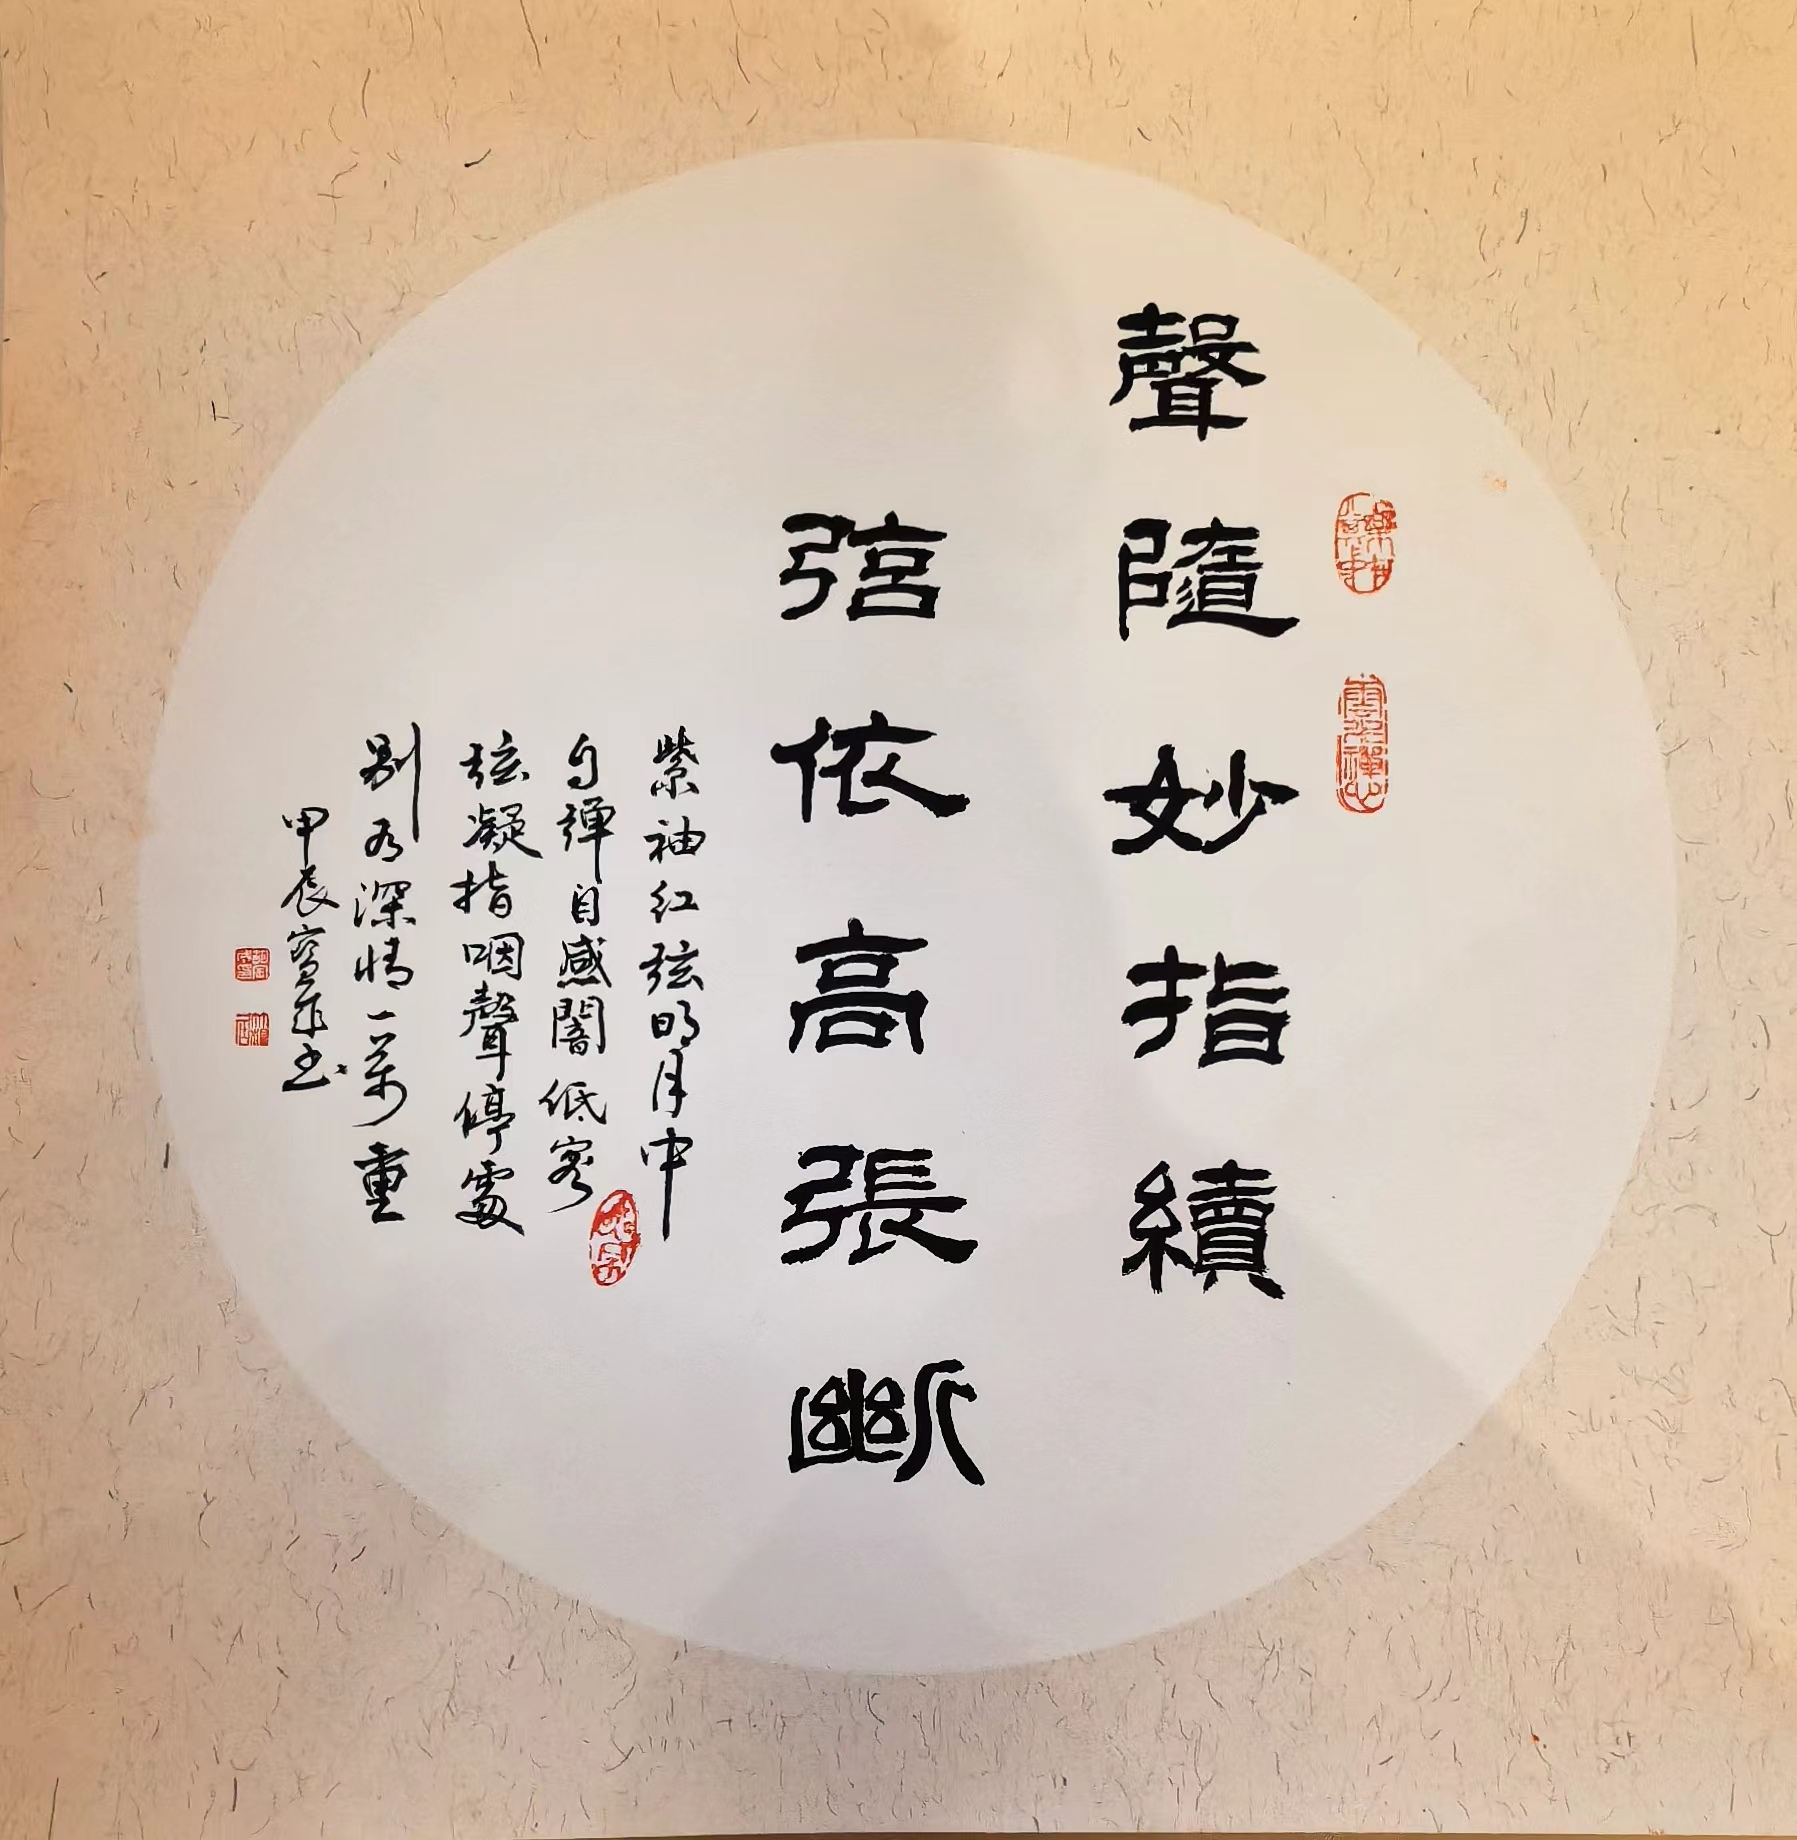 聲隨妙指續
弦依高張斷
紫袖红弦明月中
自彈自感闇低容
弦凝指咽聲停處
别有深情一萬重
甲辰 书